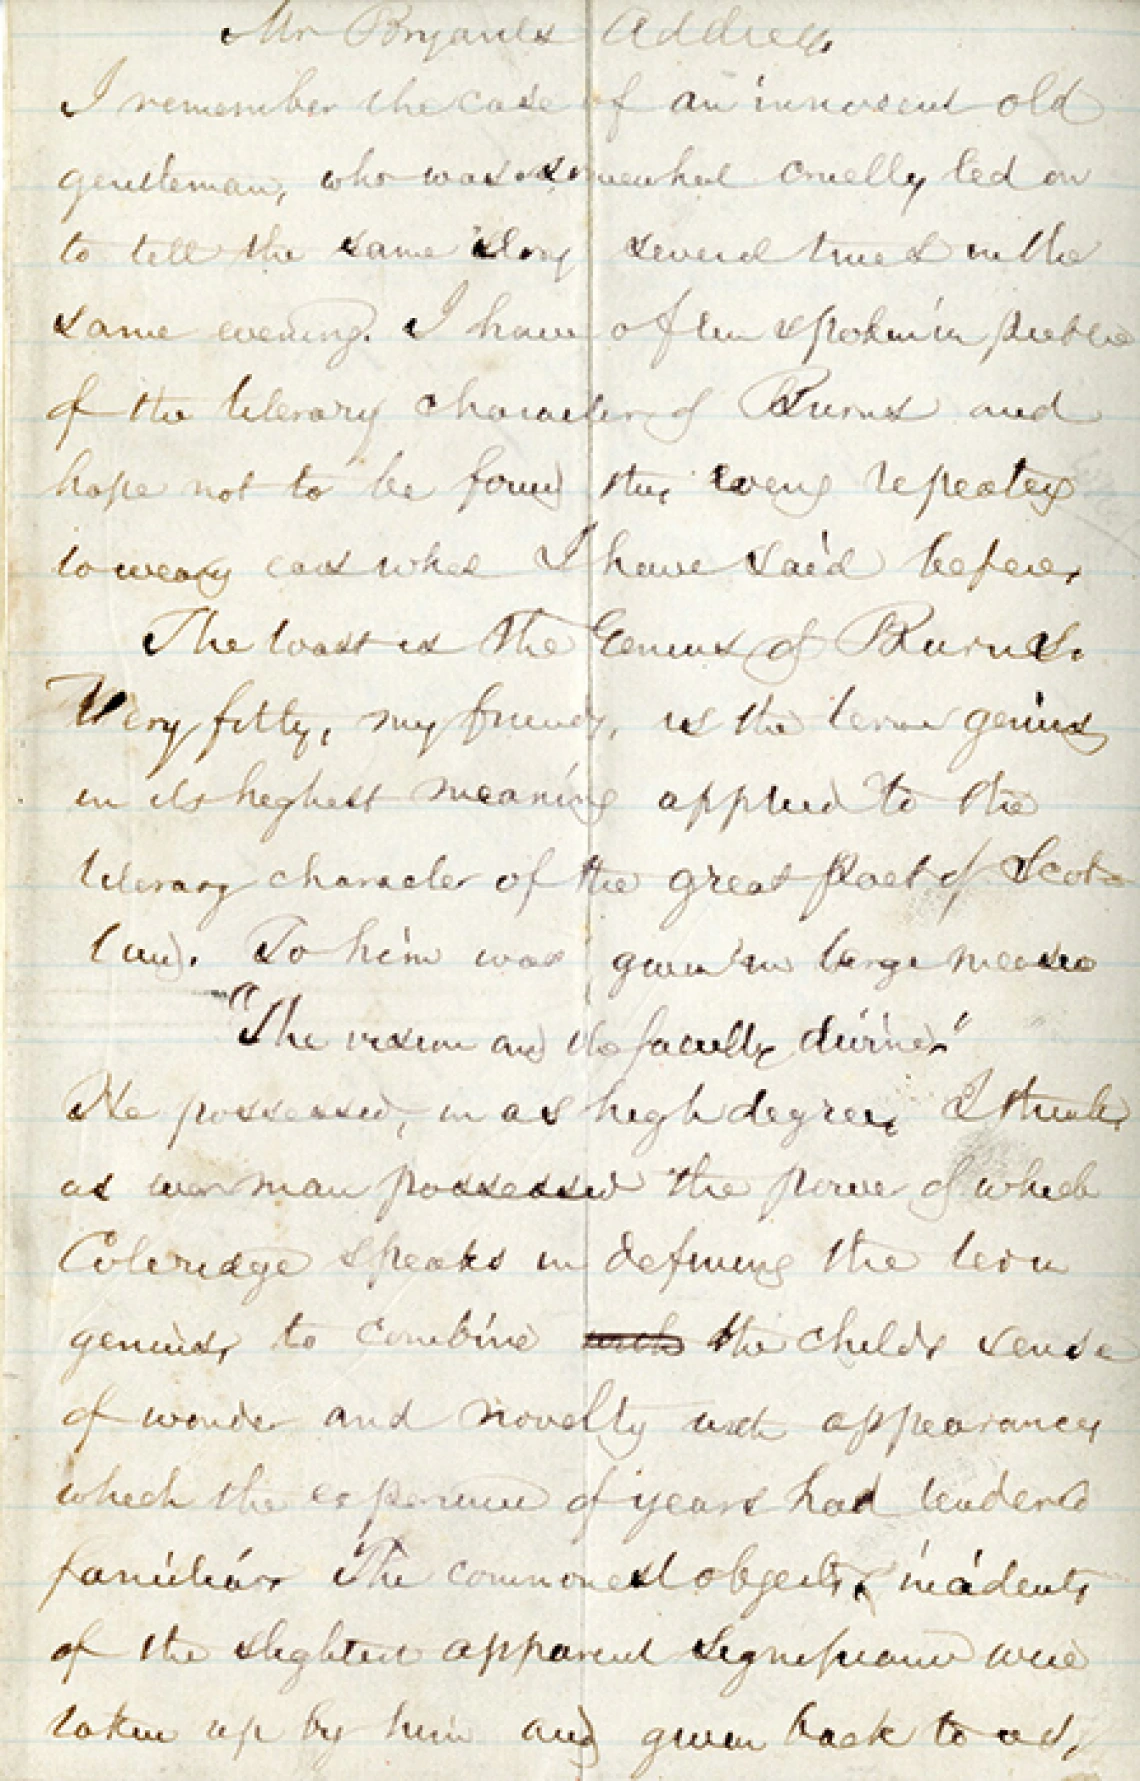 Mr Bryants Address.
I remember the case of an innocent old
gentleman, who was somewhat cruelly led on
to tell the same story several times in the
same evening. I have often spoken in public
of the literary character of Burns and
hope not to be found this eveng repeating
to weary ears what I have said before.
The toast is the Genius of Burns.
Very fitly, my friends, is the term genius
in its highest meaning applied to the
literary character of the great Poet of Scot-
land. To him was given in large measure
"The vision and the faculty divine."
He possessed, in as high degree, I think,
as ever man possessed the power of which
Coleridge speaks in defining the term
genius, to combine with the childs sense
of wonder and novelty with appearances
which the experience of years had rendered
familiar. The commonest objects, incidents
of the slightest apparent significance were
taken up by him and given back to us,